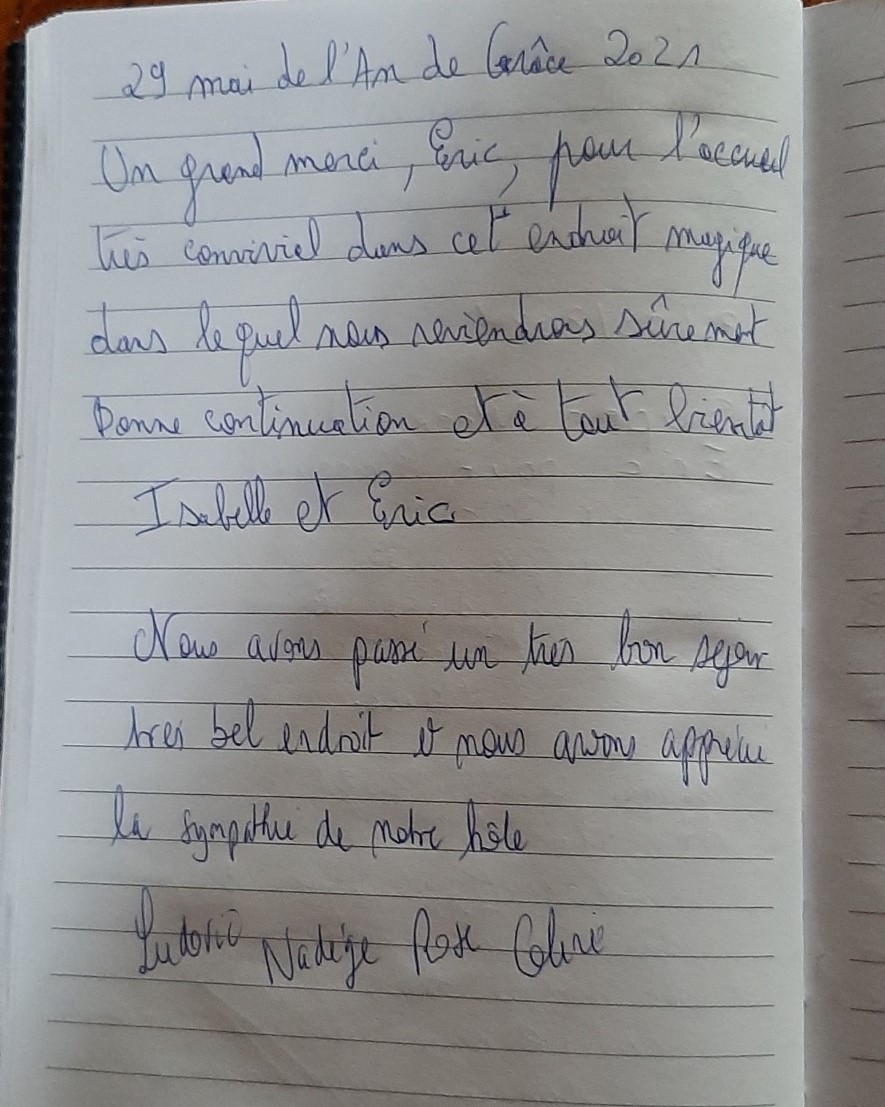 29 mai de l'An de Grâce 2021
Un grand merci, Eric, pour l'accueil
très convivial dans cet endroit magique
dans lequel nous reviendrons sûrement
Bonne continuation et à tout bientôt
Isabelle et Eric
Nous avons passé un très bon séjour
très bel endroit et nous avons apprécié
la sympathie de notre hôte
Ludovic Nadège Rose Celine